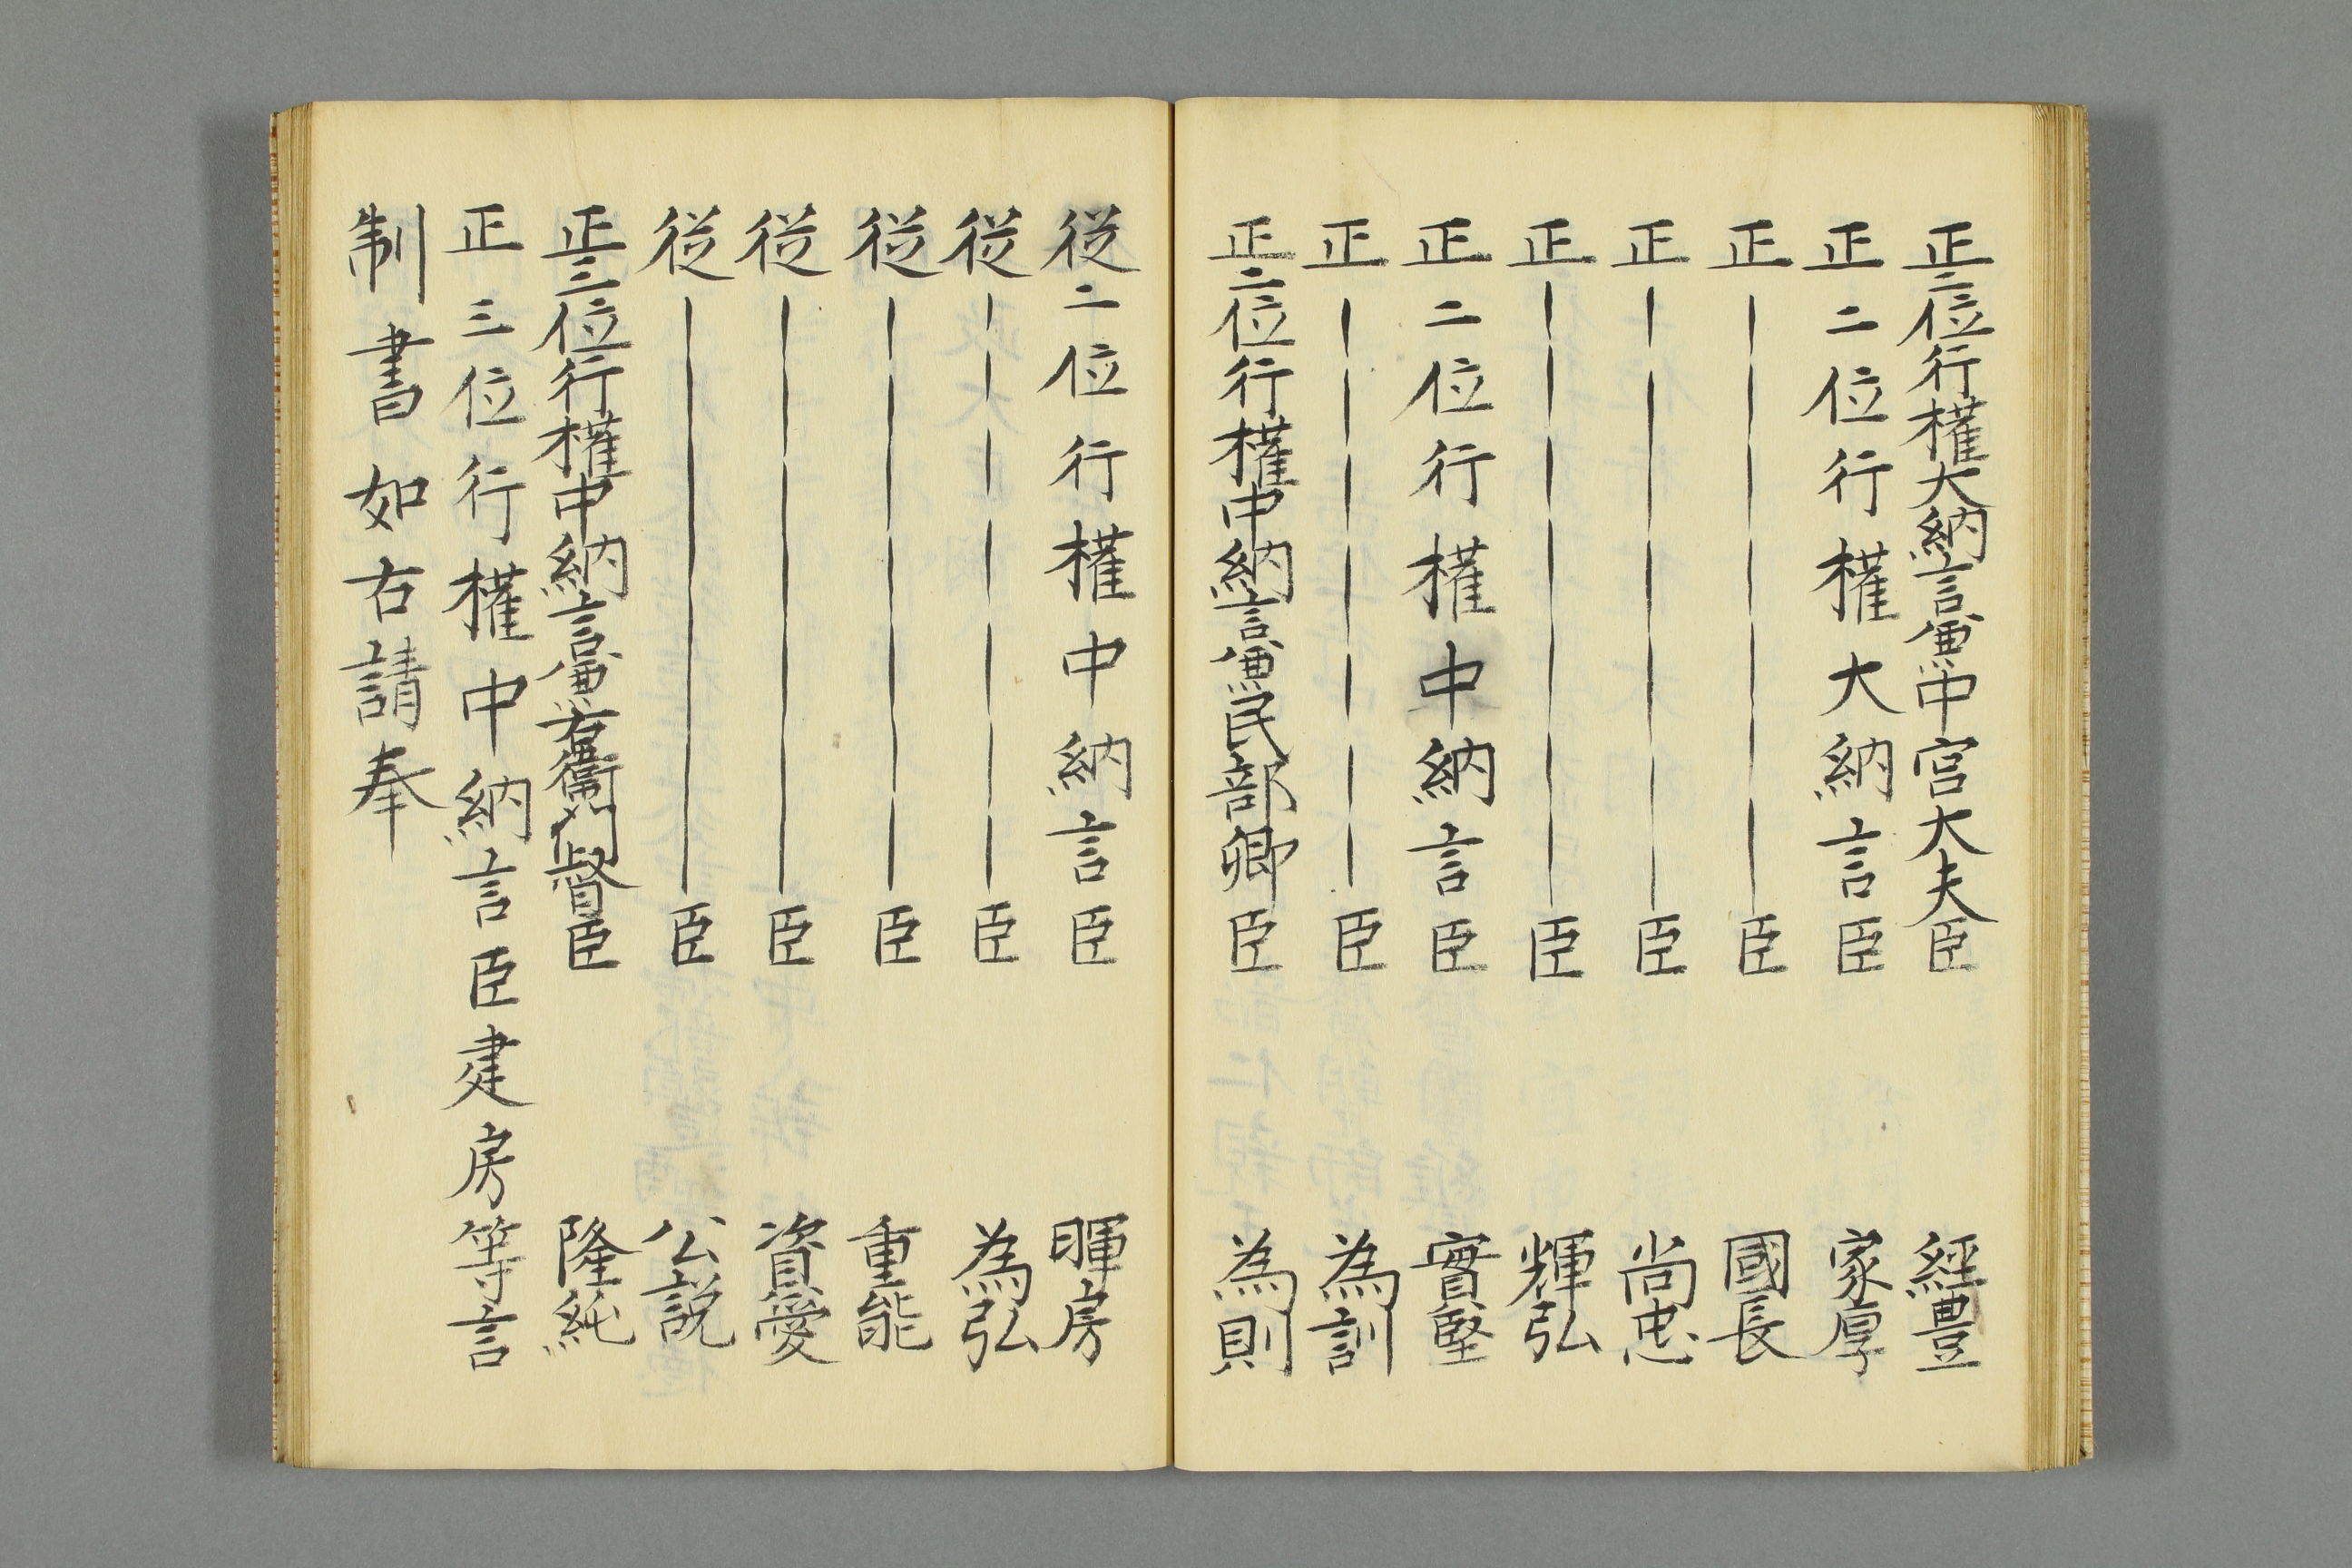 正二位行權大納言兼中宮大夫臣 經豊
正二位行權大納言臣 家厚
正――――――臣 國長
正――――――臣 尚忠
正――――――臣 輝弘
正二位行權中納言臣 實堅
正――――――臣 為訓
正二位行權中納言兼民部卿臣 為則
従二位行權中納言臣 暉房
従――――――臣 為弘
従――――――臣 重能
従――――――臣 資愛
従――――――臣 公説
正三位行權中納言兼右衛門督臣 隆純
正三位行權中納言臣建房等言
制書如右請奉